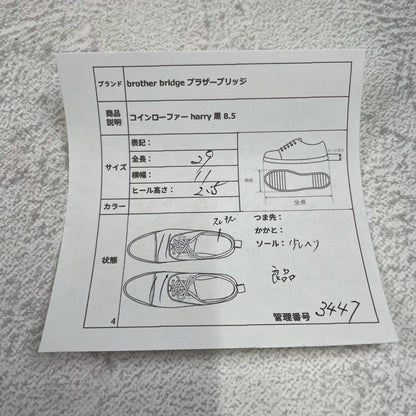 ブランド brother bridge ブラザーブリッジ
商品説明 コインローファー harry 黒 8.5
サイズ
表記：
全長： 29
横幅： 11
ヒール高さ： 2.5
ヒール高さ
横幅
全長
カラー
状態
つま先：
かかと：
ソール： 少しヘリ
良品
4
管理番号 3447